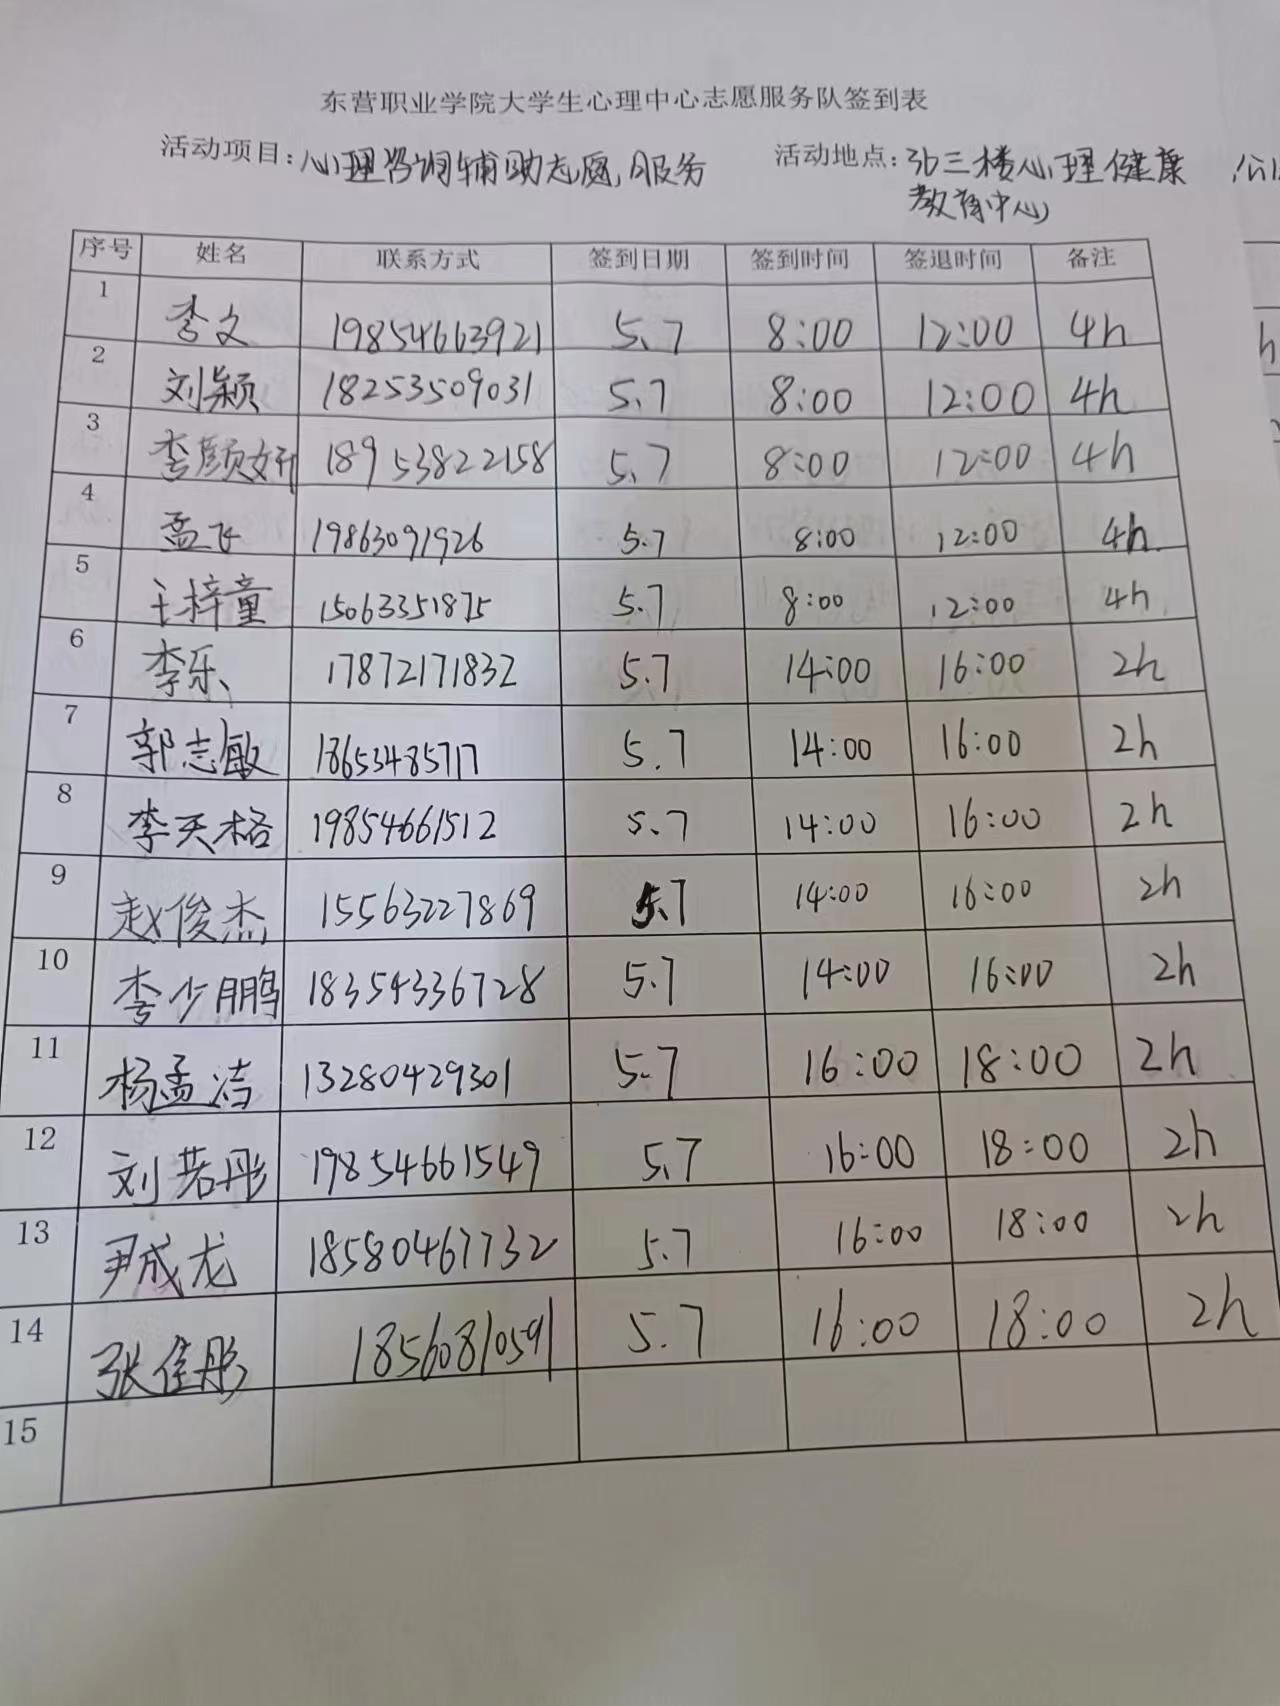 东营职业学院大学生心理中心志愿服务队签到表
活动项目：心理咨询辅助志愿服务 活动地点：3b三楼心理健康
教育中心
序号 姓名 联系方式 签到日期 签到时间 签退时间 备注
1 李文 19854663921 5.7 8:00 12:00 4h
2 刘颖 18253509031 5.7 8:00 12:00 4h
3 李颜妍 18953822158 5.7 8:00 12:00 4h
4 孟飞 19863091926 5.7 8:00 12:00 4h
5 王梓童 15063351875 5.7 8:00 12:00 4h
6 李乐 17872171832 5.7 14:00 16:00 2h
7 郭志敏 18653485717 5.7 14:00 16:00 2h
8 李天格 19854661512 5.7 14:00 16:00 2h
9 赵俊杰 15563227869 5.7 14:00 16:00 2h
10 李少鹏 18354336728 5.7 14:00 16:00 2h
11 杨孟洁 13280429301 5.7 16:00 18:00 2h
12 刘若彤 19854661549 5.7 16:00 18:00 2h
13 尹成龙 18580467732 5.7 16:00 18:00 2h
14 张佳彤 18560810591 5.7 16:00 18:00 2h
15